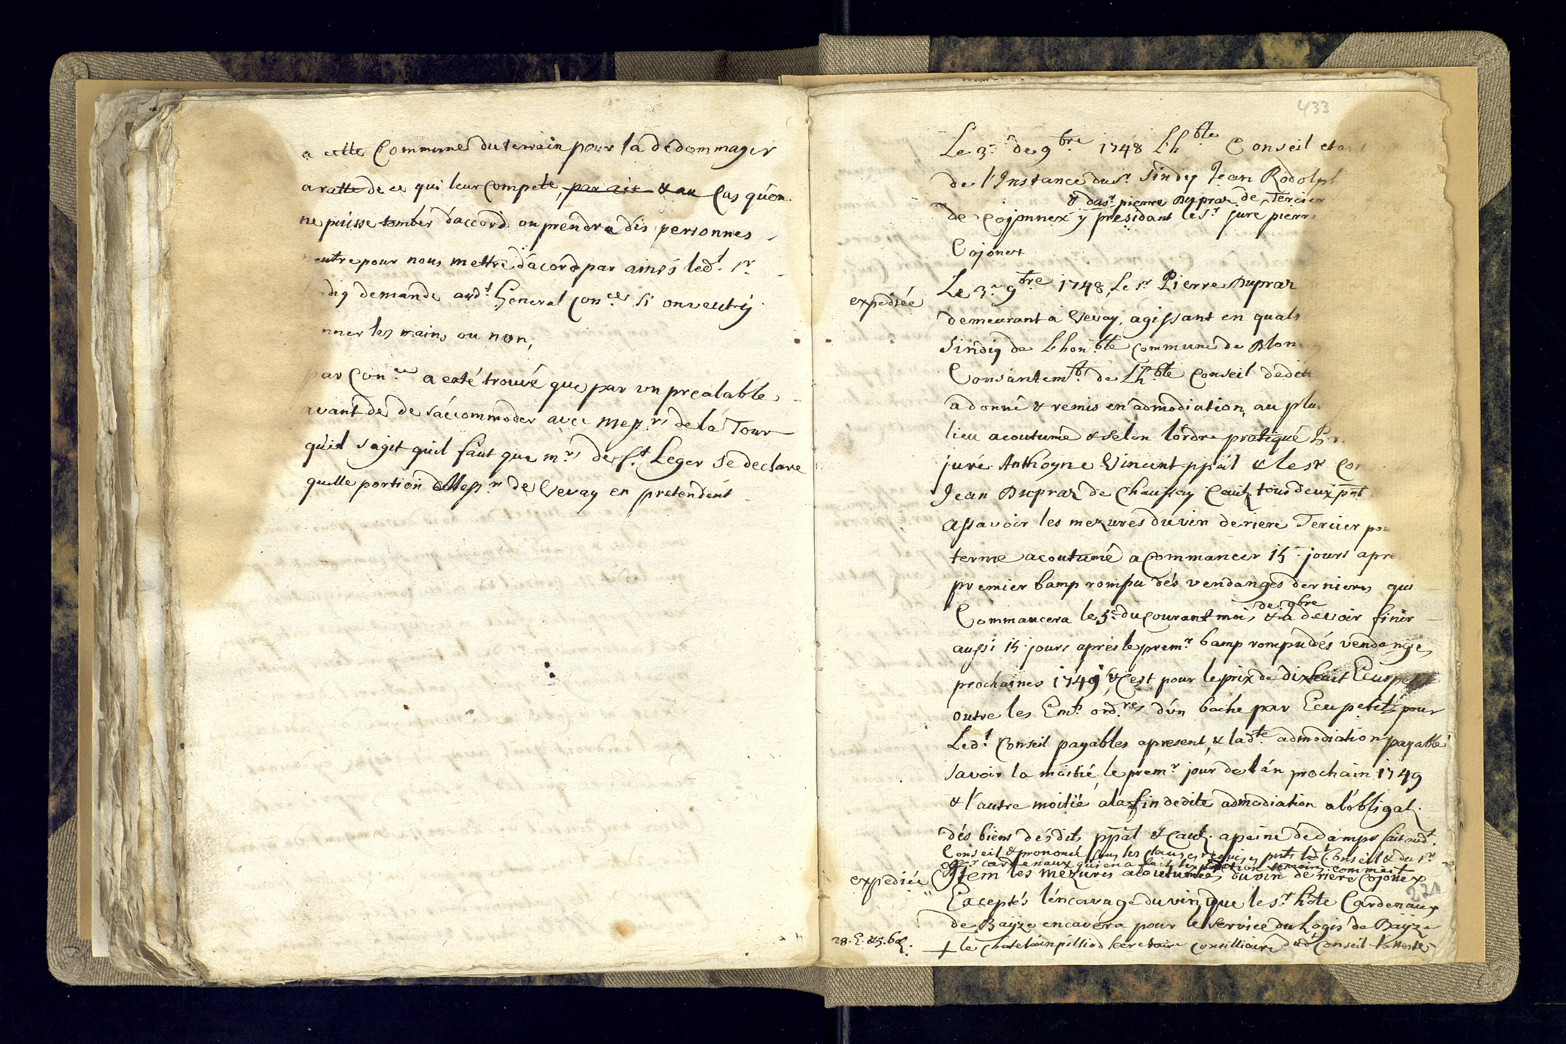 a cette Commune du terrain pour la dedommager
a ratte de ce qui leur compete, par ait & au Cas quon
ne puisse tomber d'accord on prendra dés personnes
entre pour nous mettre d'acord par ainsi led.t Sr
diq demande aud.t General Con.el Si on veut y
nner les mains ou non,
ar Con.el a esté trouvé que par un prealable
avant de de s'accommoder avec Mes.rs de la Tour
qu'il s'agit qu'il faut que m.rs de S.t Leger se declare
quelle portion Mes.rs de Vevay en pretendent
433
Le 3.e de 9bre 1748 Lh.ble Conseil etant
de l'Instance du Sr. Sindiq Jean Rodolph
& du Sr. pierre Dupraz de Tercier
de Cojonnex y presidant le Sr. juré pierre
Cojonex
expediée
Le 3.e 9bre 1748, Le Sr. Pierre Dupraz
demeurant à Vevay, agissant en quali
Sindiq de Lhon.ble Commune de Blon
Consantem.t de Lh.ble Conseil dedit
a donné & remis en admodiation, au plu
lieu acoutumé & selon l'ordre pratiqué
juré Anthoyne Vincent ppal & le Sr
Jean Dupraz de Chaussay Caut. tous deux pnt
Assavoir les mezures du vin deriere Tercier po
terme acoutumé a Commancer 15 jours apre
premier bamp rompu dés vendanges dernieres qui
de 9bre
Commancera le 5.e du Courant mois, & a devoir finir
aussi 15 jours aprés le prem.r bamp rompu dés vendanges
prochaines 1749, & C'est pour le prix de dixhuit Ecus pe
outre les Emt. ord.res d'un bache par Ecu petit pour
Led.t Conseil payables apresent, & lad.te admodiation payable
savoir la moitié le prem.r jour de l'an prochain 1749
& l'autre moitié a la fin dedite admodiation a l'obligat.
dés biens desdits ppal & Caut. a peine de damps fait aud.t
Conseil & prononcé sous les clauses
expediée
Item les mezures acoutumées, du vin deriere Cojonex
221
Exceptés l'encavage du vin, que le Sr. hôte Cardenaux
de Bayze encavera pour le service du Logis de Bayze
28. E. & 5. bch.
le Chatelain pilliod secretaire Conseilliaire dud.t Conseil l'atteste